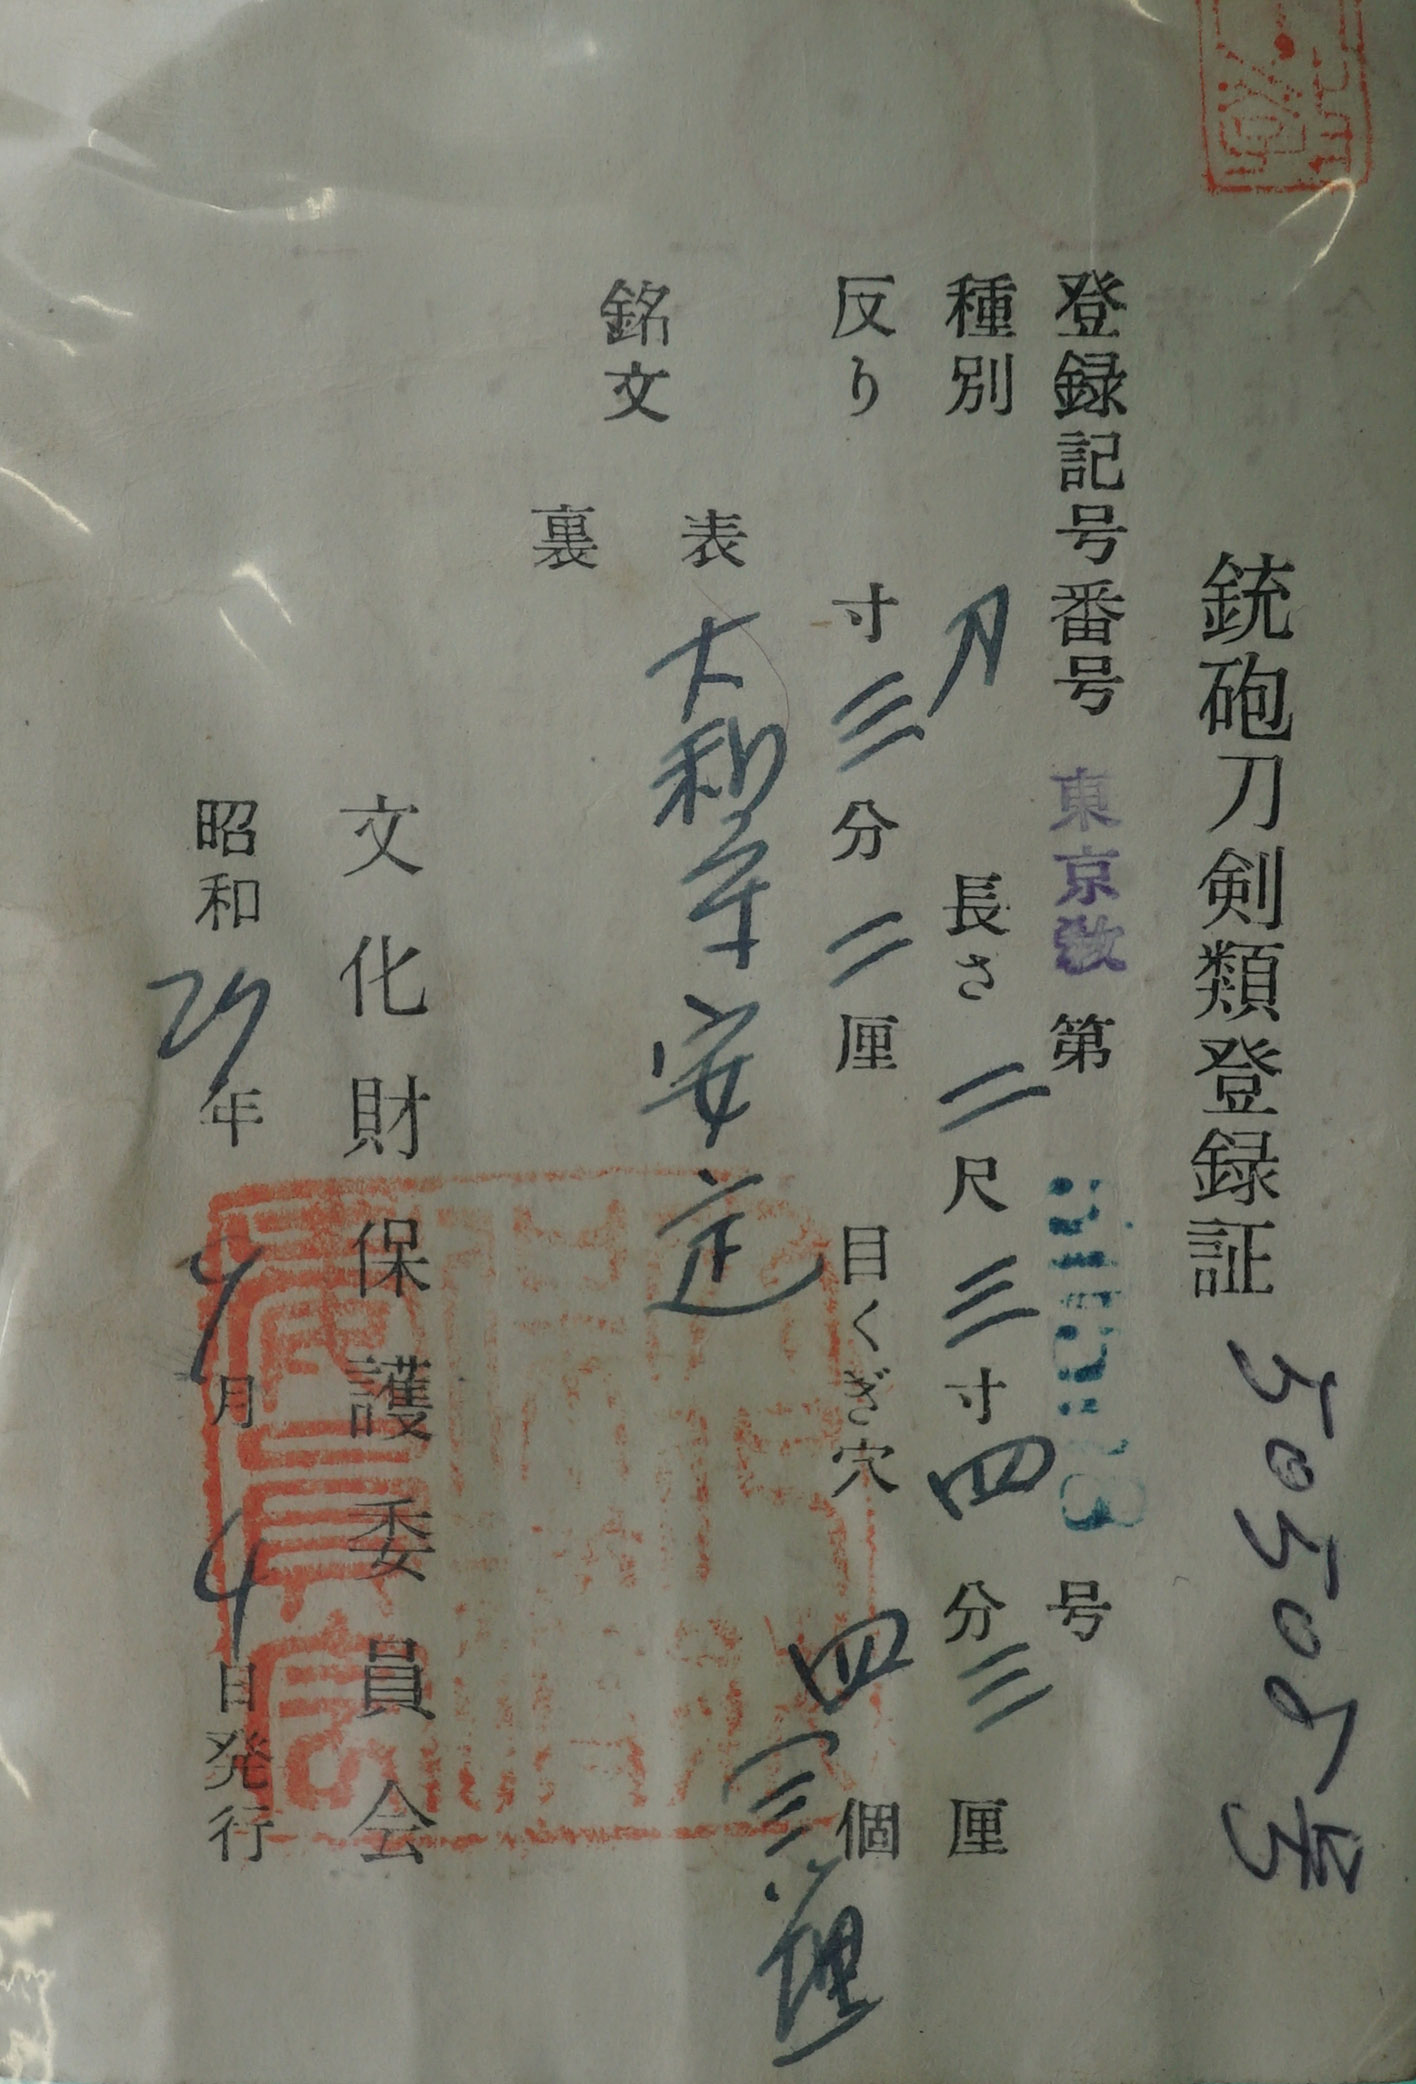 銃砲刀剣類登録証 50505号
登録記号番号 東京教 第 号
種別 刀 長さ 二尺三寸四分三厘
反り 寸三分二厘 目くぎ穴 四個
銘文
表 大和守安定
裏
文化財保護委員会
昭和29年9月4日発行